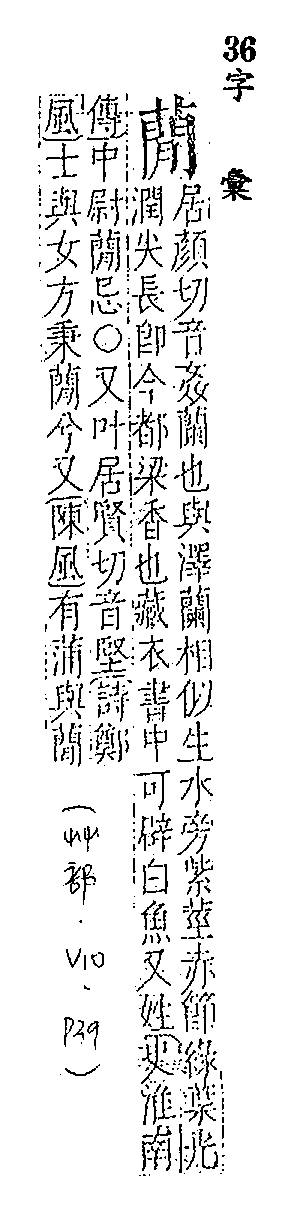 36字彙
蕑
居顏切音姦蘭也與澤蘭相似生水旁紫莖赤節綠葉光
潤尖長卽今都梁香也藏衣書中可辟白魚又姓史淮南
傳中尉蕑忌○又叶居賢切音堅詩鄭
風士與女方秉蕑兮又陳風有蒲與蕑
(艸部．V10．P29)